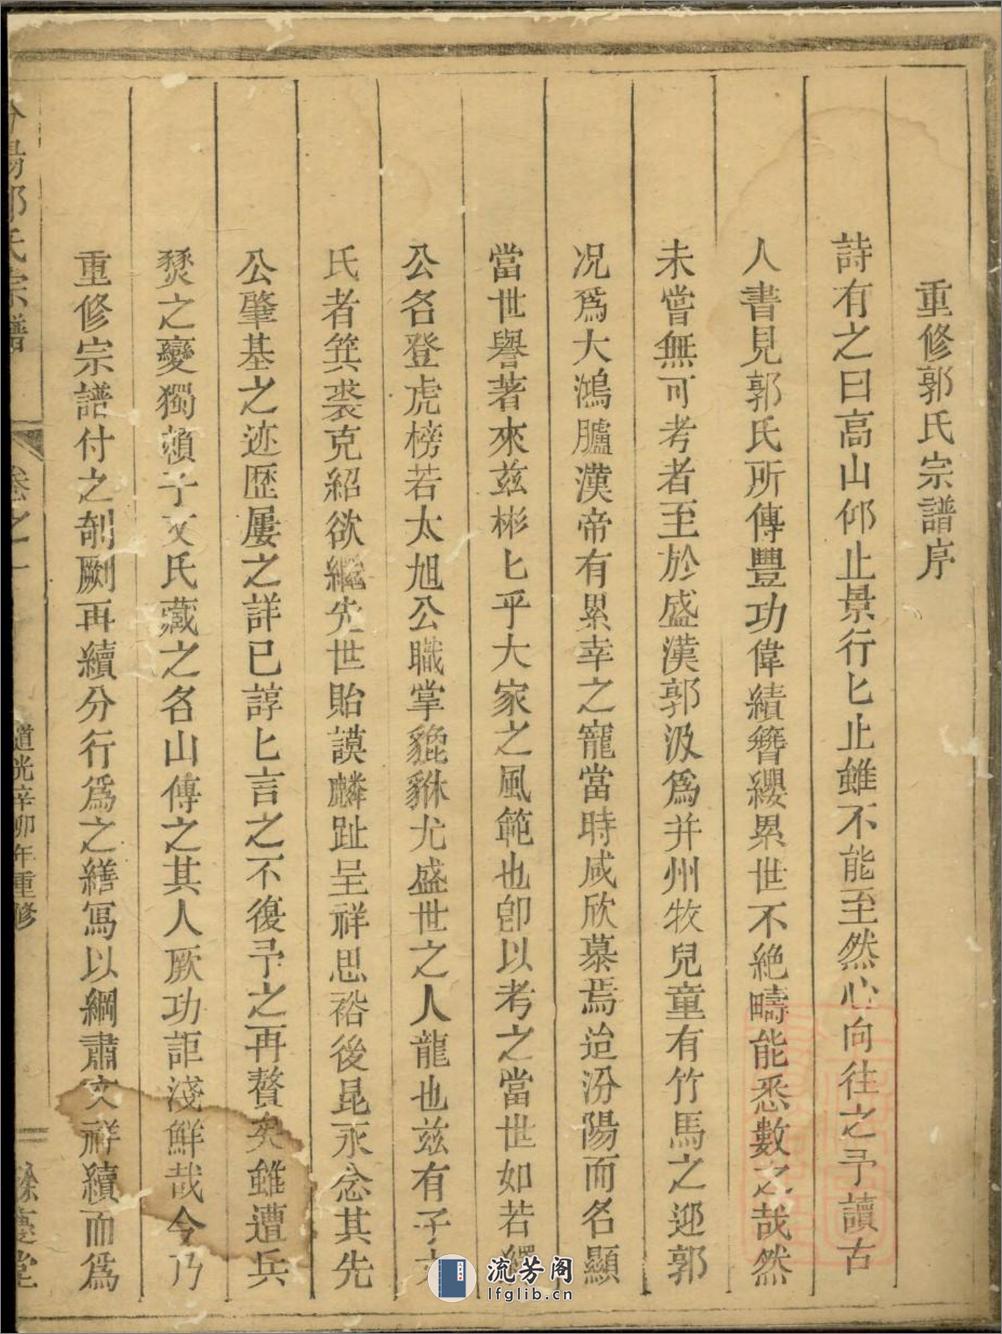 重修郭氏宗譜序
詩有之曰高山仰止景行匕止雖不能至然心向往之予讀古
人書見郭氏所傳豐功偉績簪纓累世不絶疇能悉數之哉然
未嘗無可考者至於盛漢郭汲爲并州牧兒童有竹馬之迎郭
况爲大鴻臚漢帝有累幸之寵當時咸欣慕焉迨汾陽而名顯
當世譽著來兹彬匕乎大家之風範也卽以考之當世如若繩
公名登虎榜若太旭公職掌貔貅尤盛世之人龍也兹有子文
氏者箕裘克紹欲繩先世貽謨麟趾呈祥思裕後昆永念其先
公肇基之迹歷屢之詳已諄匕言之不復予之再贅矣雖遭兵
燹之變獨賴子文氏藏之名山傳之其人厥功詎淺鮮哉今乃
重修宗譜付之剞劂再續分行爲之繕寫以綱肅文祥續而爲
汾陽郭氏宗譜
卷之一
道光辛卯年重修
餘慶堂
流芳阁
lfglib.cn